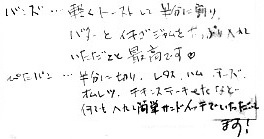 バンズ … 軽くトーストして半分に割り、
バターとイチゴジャムをたっぷり入れ
いただくと最高です♡
ぺたパン … 半分に切り、レタス、ハム、チーズ、
オムレツ、チキンステーキなど
何でも入れて簡単サンドイッチでいただいて
ます!